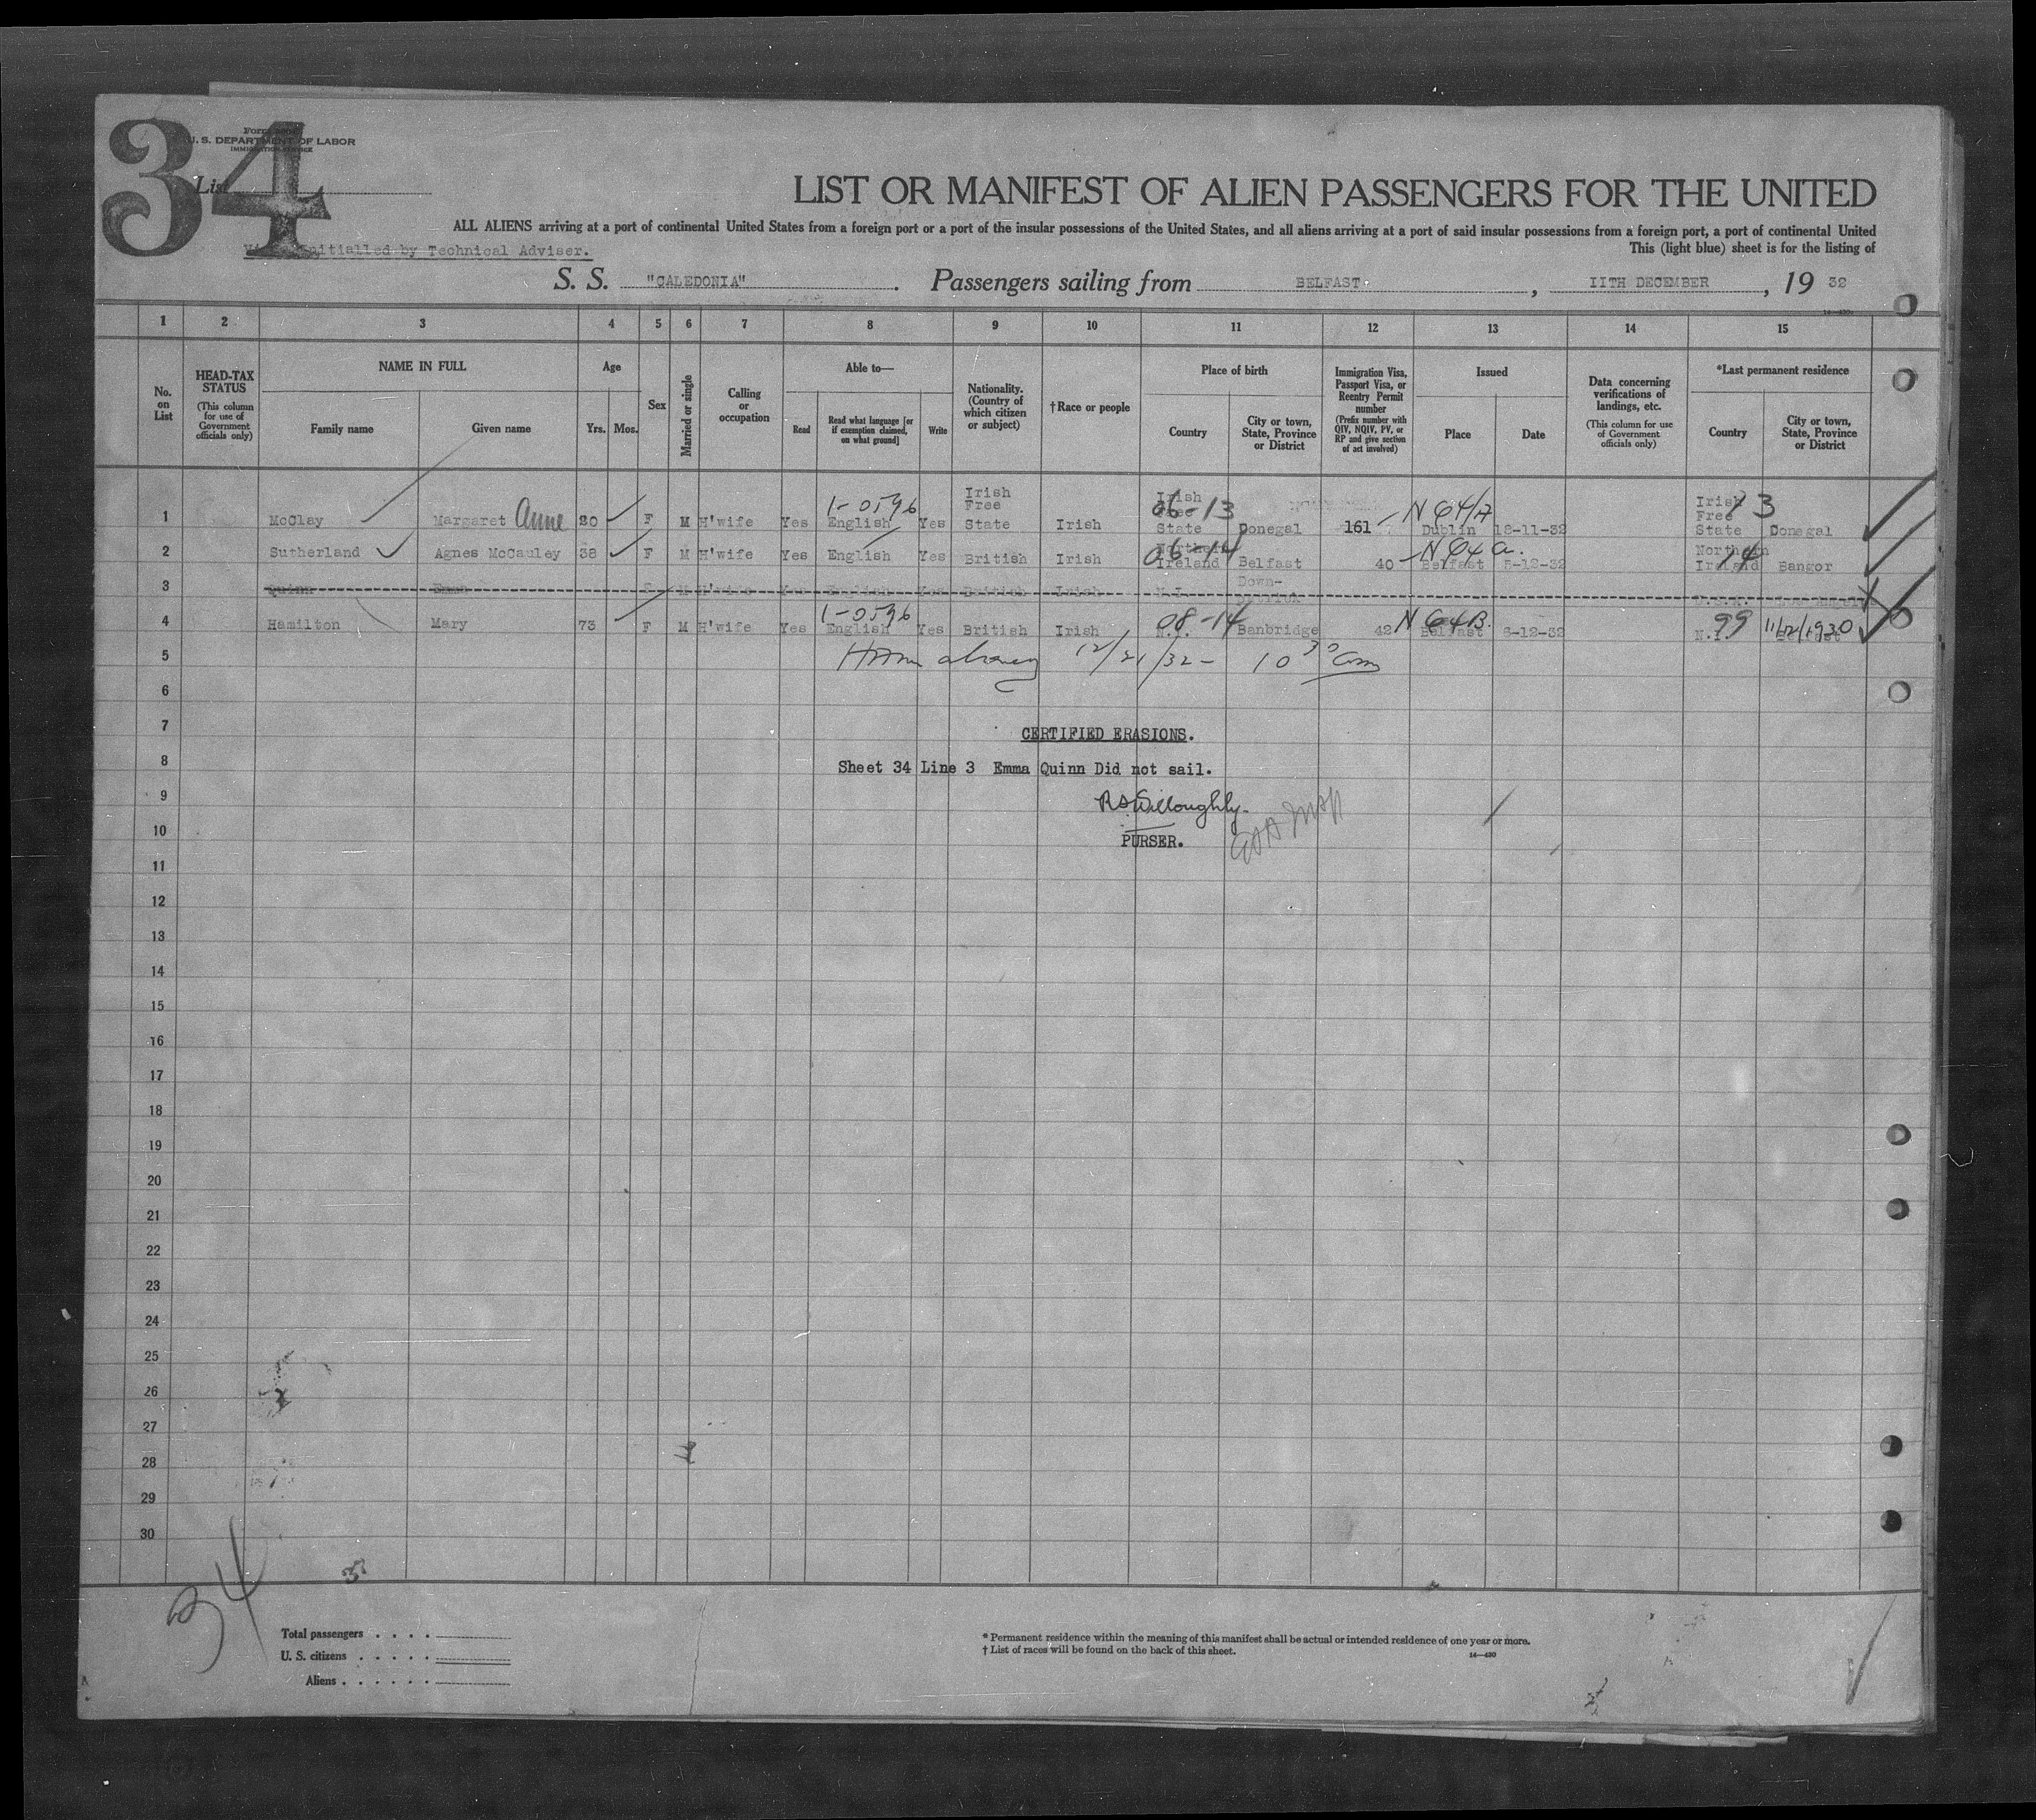 34
U. S. DEPARTMENT OF LABOR
IMMIGRATION SERVICE
List
LIST OR MANIFEST OF ALIEN PASSENGERS FOR THE UNITED
ALL ALIENS arriving at a port of continental United States from a foreign port or a port of the insular possessions of the United States, and all aliens arriving at a port of said insular possessions from a foreign port, a port of continental United
initialled by Technical Adviser.
This (light blue) sheet is for the listing of
S. S. "CALEDONIA" . Passengers sailing from BELFAST. , 11TH DECEMBER , 19 32
1 2 3 4 5 6 7 8 9 10 11 12 13 14 15
No. on List
HEAD-TAX STATUS (This column for use of Government officials only)
NAME IN FULL
Family name Given name
Age
Yrs. Mos.
Sex
Married or single
Calling or occupation
Able to—
Read Read what language [or if exemption claimed, on what ground] Write
Nationality. (Country of which citizen or subject)
†Race or people
Place of birth
Country City or town, State, Province or District
Immigration Visa, Passport Visa, or Reentry Permit number (Prefix number with QIV, NQIV, PV, or RP and give section of act involved)
Issued
Place Date
Data concerning verifications of landings, etc. (This column for use of Government officials only)
*Last permanent residence
Country City or town, State, Province or District
1 McClay Margaret Anne 20 F M H'wife Yes 1-0596 English Yes Irish Free State Irish Irish Free State 06-13 Donegal 161 N 64/A Dublin 18-11-32 Irish Free State 13 Donegal
2 Sutherland Agnes McCauley 38 F M H'wife Yes English Yes British Irish Northern Ireland 06-14 Belfast 40 N 64 a. Belfast 5-12-32 Northern Ireland 14 Bangor
3 Quinn Emma F M H'wife Yes English Yes British Irish N.I. Down-patrick U.S.A. Los Angeles
4 Hamilton Mary 73 F M H'wife Yes 1-0596 English Yes British Irish N.I. 08-14 Banbridge 42 N 64B. Belfast 6-12-32 N.I. 99 11/2/1930 Belfast
5 12/21/32 - 10 30 am
6
7 CERTIFIED ERASIONS.
8 Sheet 34 Line 3 Emma Quinn Did not sail.
9 RS Willoughby.
10 PURSER.
11
12
13
14
15
16
17
18
19
20
21
22
23
24
25
26
27
28
29
30
34
Total passengers . . . .
U. S. citizens . . . . .
Aliens . . . . . .
* Permanent residence within the meaning of this manifest shall be actual or intended residence of one year or more.
† List of races will be found on the back of this sheet.
14—430